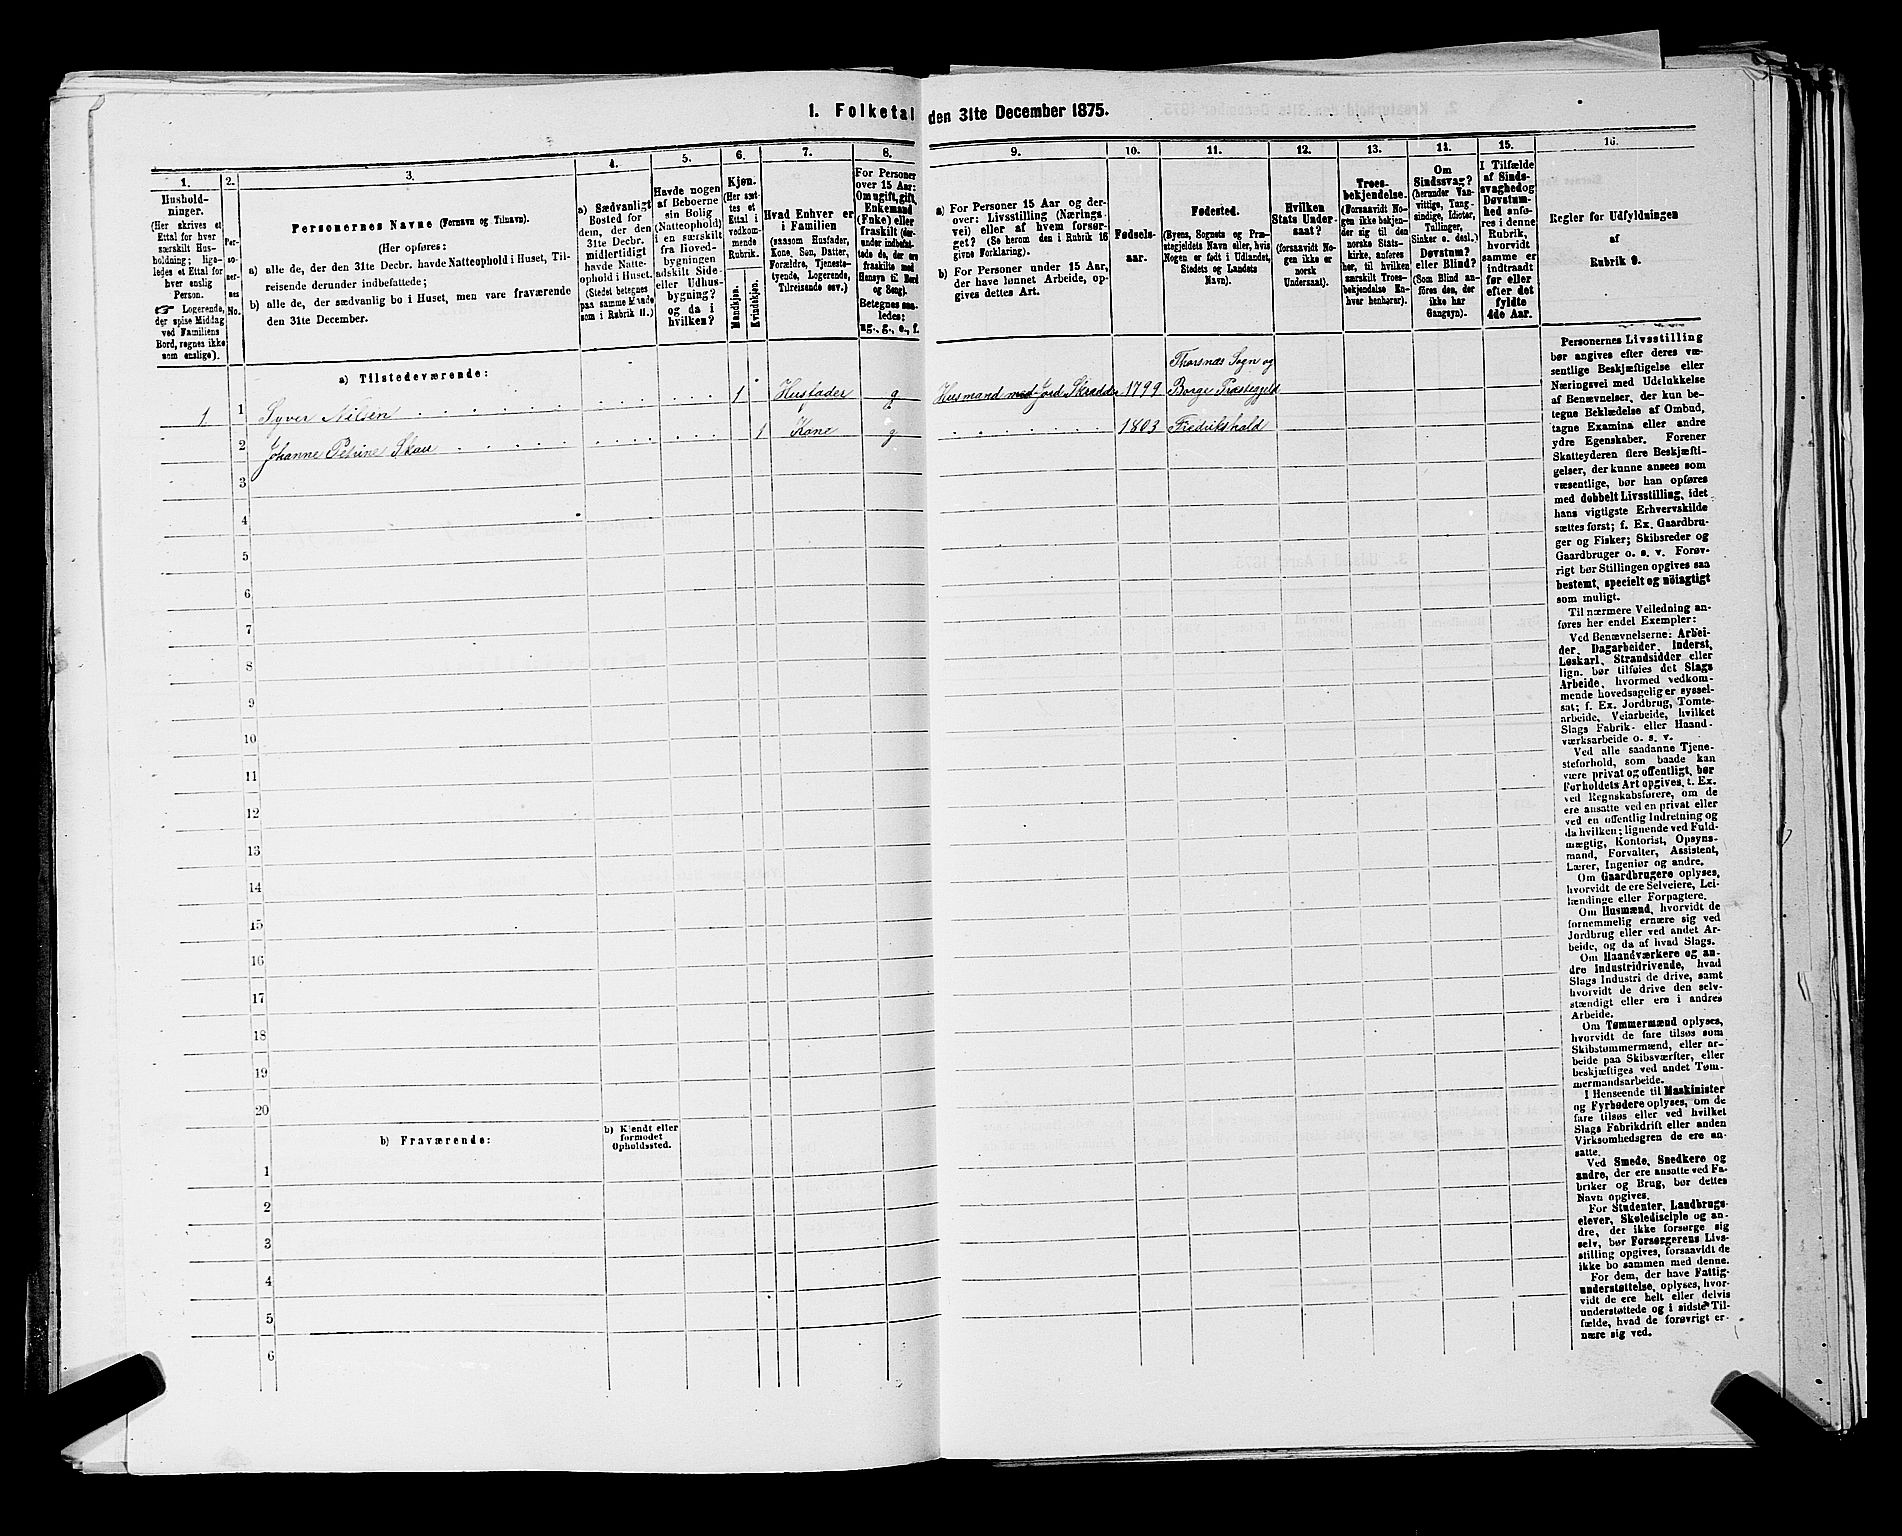 1. Folketal den 31te December 1875.
1.
2.
3.
4.
5.
6.
7.
8.
9.
10.
11.
12.
13.
14.
15.
16.
Hushold-
ninger.
(Her skrives et
Ettal for hver
særskilt Hus-
holdning; lige-
ledes et Ettal for
hver enslig
Person.
☞ Logerende,
der spise Middag
ved Familiens
Bord, regnes ikke
som enslige).
Per-
so-
ner-
nes
No.
Personernes Navne (Fornavn og Tilnavn).
(Her opføres:
a) alle de, der den 31te Decbr. havde Natteophold i Huset, Til-
reisende derunder indbefattede;
b) alle de, der sædvanlig bo i Huset, men vare fraværende
den 31te December.
a) Sædvanligt
Bosted for
dem, der den
31te Decbr.
midlertidigt
havde Natte-
ophold i Huset.
(Stedet betegnes
paa samme Maade
som i Rubrik 11.)
Havde nogen
af Beboerne
sin Bolig
(Natteophold)
i en særskilt
fra Hoved-
bygningen
adskilt Side-
eller Udhus-
bygning?
og da i
hvilken?
Kjøn.
(Her sæt-
tes et
Ettal i
vedkom-
mende
Rubrik.
Mandkjøn.
Kvindekjøn.
Hvad Enhver er
i Familien
(saasom Husfader,
Kone, Søn, Datter,
Forældre, Tjeneste-
tyende, Logerende,
Tilreisende osv.)
For Personer
over 15 Aar:
Om ugift, gift,
Enkemand
(Enke) eller
fraskilt (der-
under indbefat-
tede de, der ere
fraskilte med
Hensyn til Bord
og Seng).
Betegnes saa-
ledes:
ug., g., e., f.
a) For Personer 15 Aar og der-
over: Livsstilling (Nærings-
vei) eller af hvem forsør-
get? (Se herom den i Rubrik 16
givne Forklaring).
b) For Personer under 15 Aar,
der have lønnet Arbeide, op-
gives dettes Art.
Fødsels-
aar.
Fødested.
(Byens, Sognets og Præ-
stegjeldets Navn eller, hvis
Nogen er født i Udlandet,
Stedets og Landets
Navn).
Hvilken
Stats Under-
saat?
(forsaavidt No-
gen ikke er
norsk
Undersaat).
Troes-
bekjendelse.
(Forsaavidt No-
gen ikke beken-
der sig til den
norske Stats-
kirke, anføres
her, til hvilken
særskilt Troes-
bekjendelse En-
hver henhører).
Om
Sindssvag?
(herunder Van-
vittige, Tung-
sindige, Idioter,
Tullinger,
Sinker o. desl.)
Døvstum?
eller Blind?
(Som Blind an-
føres den, der
ikke har
Gangsyn).
I Tilfælde
af Sinds-
svaghed og
Døvstum-
hed anfø-
res i denne
Rubrik,
hvorvidt
samme er
indtraadt
før eller
efter det
fyldte
4de Aar.
Regler for Udfyldningen
af
Rubrik 9.
a) Tilstedeværende:
Thorsnæs Sogn og
1 1 Syver Nilsen 1 Husfader g Husmand med Jord, Skrædder 1799 Borge Præstegjeld
2 Johanne Petrine Skau 1 Kone g 1803 Fredrikshald
3
4
5
6
7
8
9
10
11
12
13
14
15
16
17
18
19
20
b) Fraværende:
b) Kjendt eller
formodet
Opholdssted.
1
2
3
4
5
6
Personernes Livsstilling
bør angives efter deres væ-
sentlige Beskjæftigelse eller
Næringsvei med Udelukkelse
af Benævnelser, der kun be-
tegne Beklædelse af Ombud,
tagne Examina eller andre
ydre Egenskaber. Forener
Skatteyderen flere Beskjæfti-
gelser, der kunne ansees som
væsentlige, bør han opføres
med dobbelt Livsstilling, idet
hans vigtigste Erhvervskilde
sættes først; f. Ex. Gaardbru-
ger og Fisker; Skibsreder og
Gaardbruger o. s. v. Forøv-
rigt bør Stillingen opgives saa
bestemt, specielt og nöiagtigt
som muligt.
Til nærmere Veiledning an-
føres her endel Exempler:
Ved Benævnelserne: Arbei-
der, Dagarbeider, Inderst,
Løskarl, Strandsidder eller
lign. bør tilføies det Slags
Arbeide, hvormed vedkom-
mende hovedsagelig er syssel-
sat; f. Ex. Jordbrug, Tomte-
arbeide, Veiarbeide, hvilket
Slags Fabrik- eller Haand-
værksarbeide o. s. v.
Ved alle saadanne Tjene-
steforhold, som baade kan
være privat og offentligt, bør
Forholdets Art opgives, t. Ex.
ved Regnskabsførere, om de
ere ansatte ved en privat eller
ved en offentlig Indretning og
da hvilken; lignende ved Fuld-
mægtig, Kontorist, Opsyns-
mand, Forvalter, Assistent,
Lærer, Ingeniør og andre.
Om Gaardbrugere oplyses,
hvorvidt de ere Selveiere, Lei-
lændinge eller Forpagtere.
Om Husmænd, hvorvidt de
fornemmelig ernære sig ved
Jordbrug eller ved andet Ar-
beide, og da af hvad Slags.
Om Haandværkere og an-
dre Industridrivende, hvad
Slags Industri de drive, samt
hvorvidt de drive den selv-
stændigt eller ere i andres
Arbeide.
Om Tømmermænd oplyses,
hvorvidt de fare tilsøs som
Skibstømmermænd, eller ar-
beide paa Skibsværfter, eller
beskjæftiges ved andet Tøm-
mermandsarbeide.
I Henseende til Maskinister
og Fyrbødere oplyses, om de
fare tilsøs eller ved hvilket
Slags Fabrikdrift eller anden
Virksomhedsgren de ere an-
satte.
Ved Smede, Snedkere og
andre, der ere ansatte ved Fa-
briker og Brug, bør dettes
Navn opgives.
For Studenter, Landbrugs-
elever, Skoledisciple og an-
dre, der ikke forsørge sig
selv, bør Forsørgerens Livs-
stilling opgives, forsaavidt de
ikke bo sammen med denne.
For dem, der have Fattig-
understøttelse, oplyses, hvor-
vidt de ere helt eller delvis
understøttede og i sidste Til-
fælde, hvad de forøvrigt er-
nære sig ved.